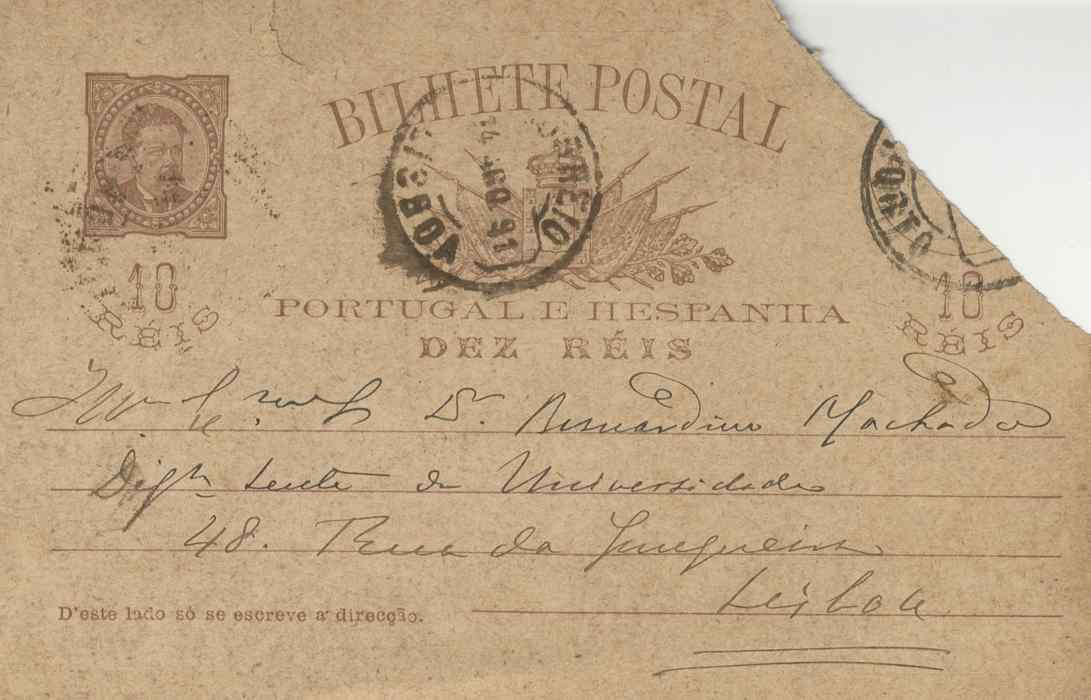 BILHETE POSTAL
CORREIO
LISBOA
PORTO
10 RÉIS
10 RÉIS
PORTUGAL E HESPANHA
DEZ RÉIS
Dr. Bernardino Machado
Digmo Lente da Universidade
48. Rua da Junqueira
Lisboa
D'este lado só se escreve a direcção.